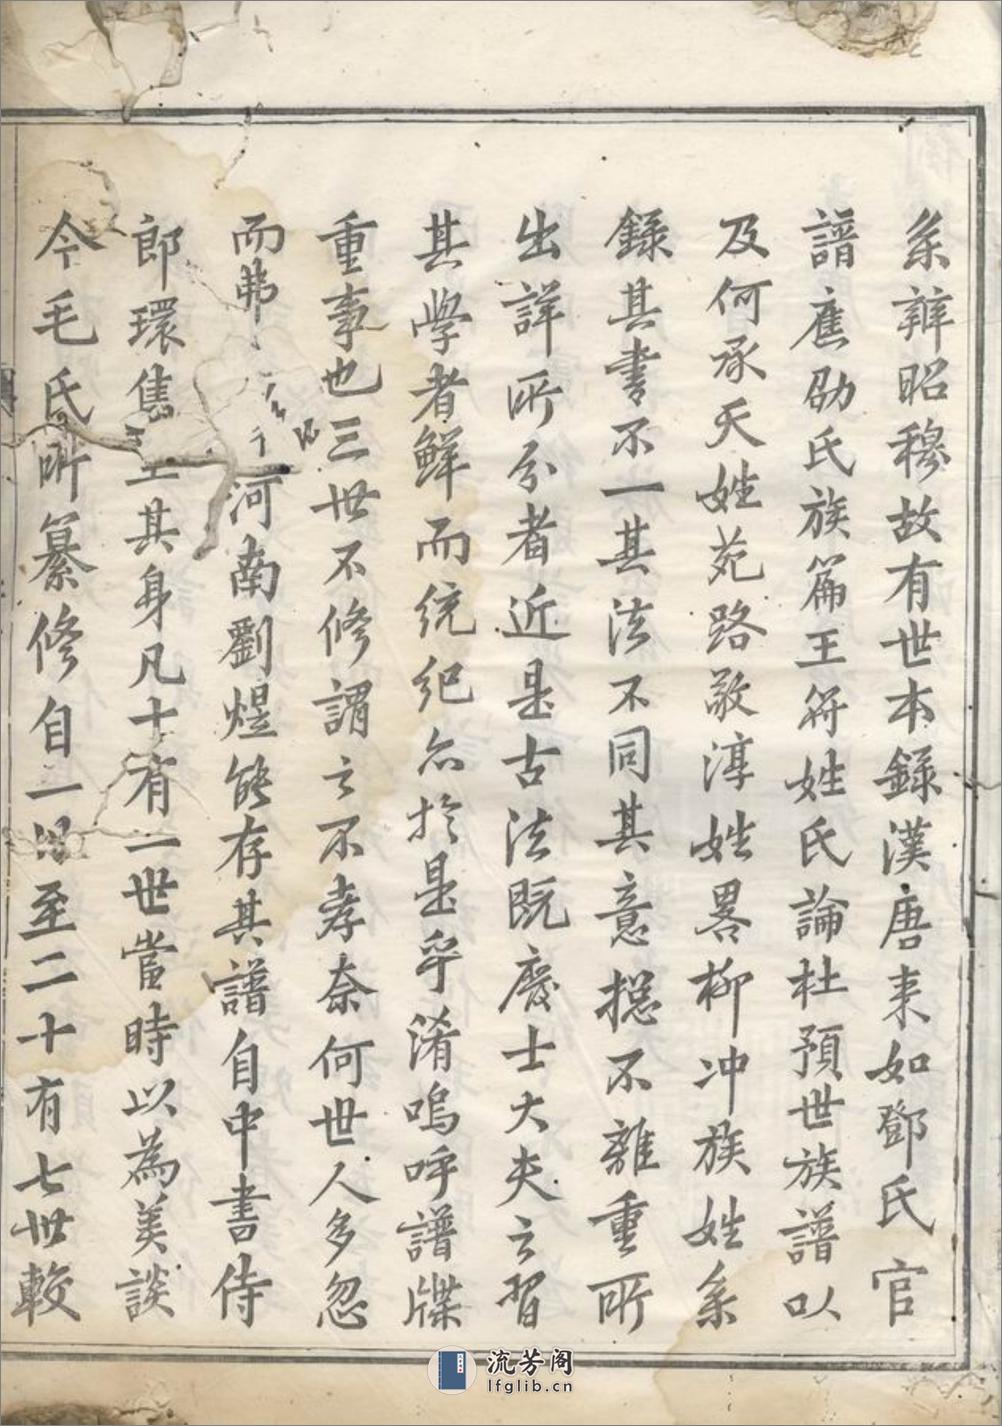 系辨昭穆故有世本錄漢唐来如鄧氏官
譜應劭氏族篇王符姓氏論杜預世族譜以
及何承天姓苑路敬淳姓畧柳冲族姓系
錄其書不一其法不同其意揔不離重所
出詳所分者近是古法既廢士大夫云習
其學者鮮而統紀亦扵是乎淆嗚呼譜牒
重事也三世不修謂之不孝奈何世人多忽
而弗河南劉焜能存其譜自中書侍
郎環雋上其身凡十有二世當時以為美談
今毛氏所纂修自一世至二十有七世較
流芳阁
lfglib.cn